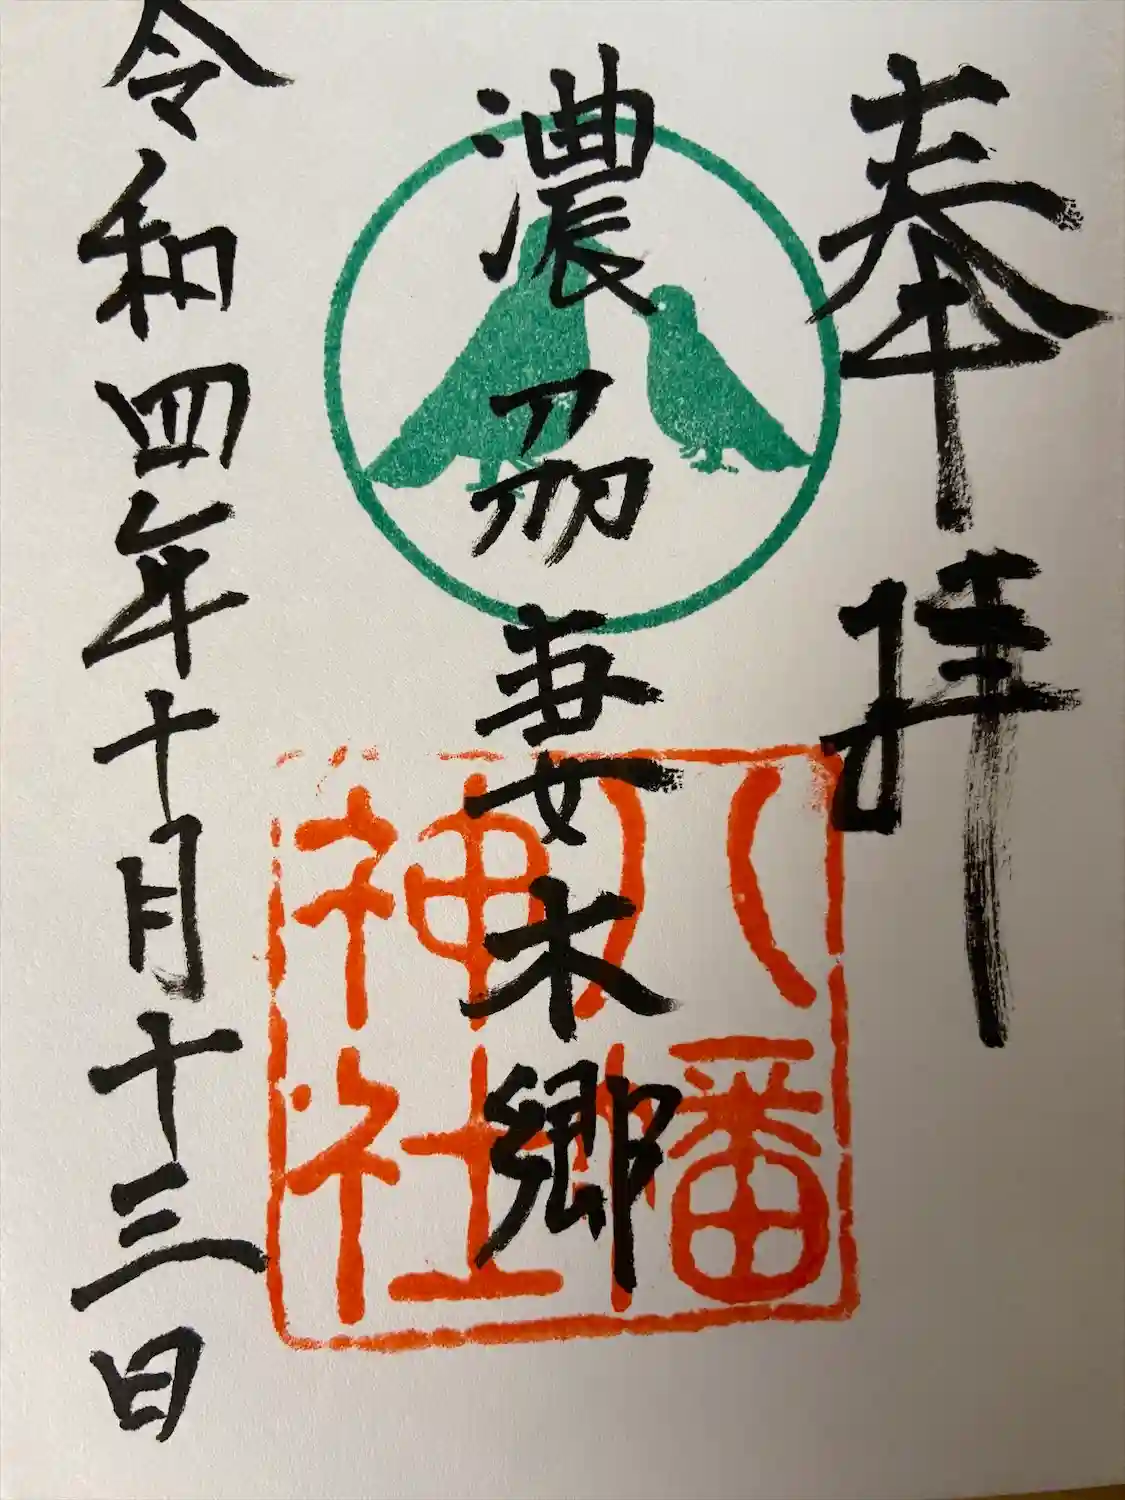 奉拝
濃刕妻木郷
八幡
神社
令和四年十月十三日